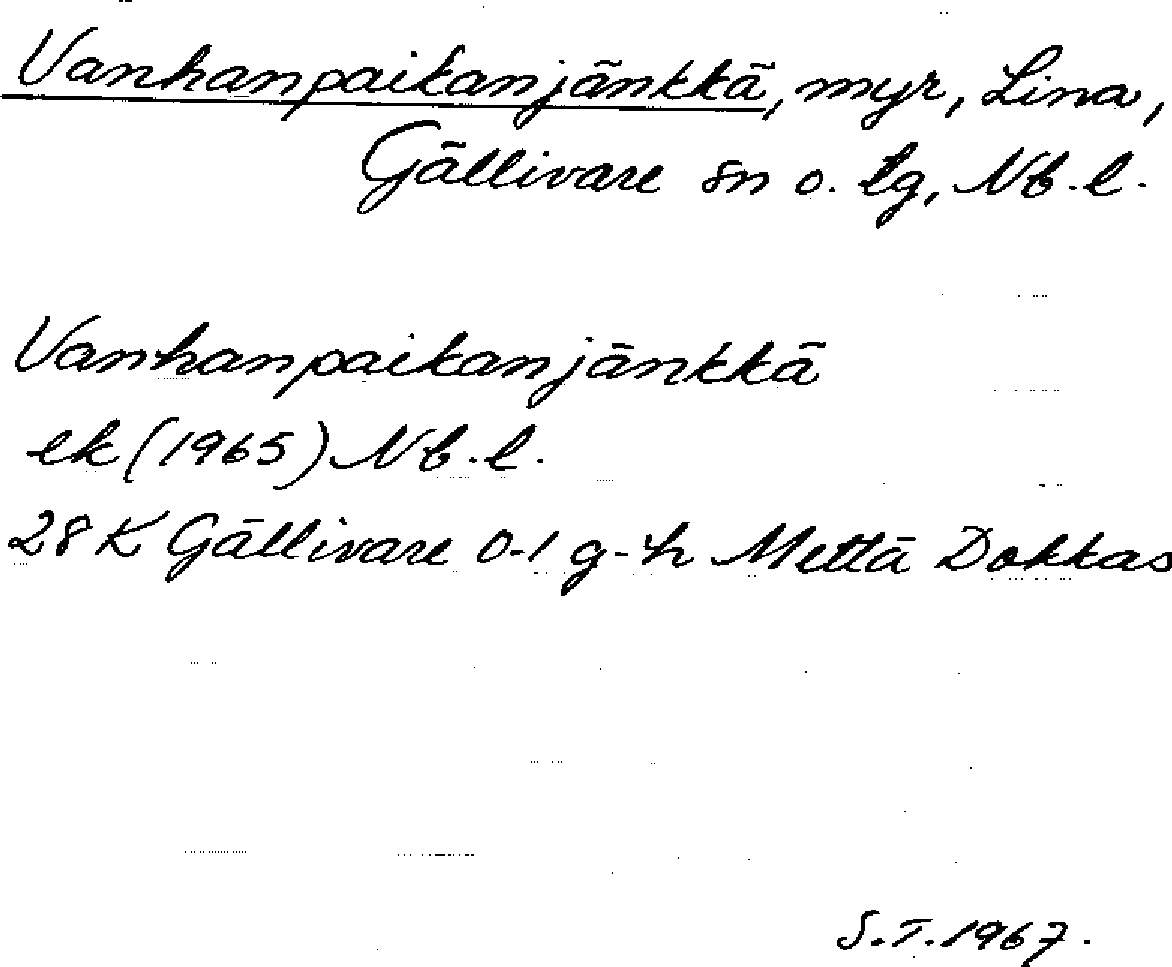 Vanhanpaikanjänkkä, myr, Lina,
Gällivare sn o. tg, Nb. l.
Vanhanpaikanjänkkä
ek (1965) Nb. l.
28 K Gällivare 0-1 g-h Mettä Dokkas
S.T. 1967.